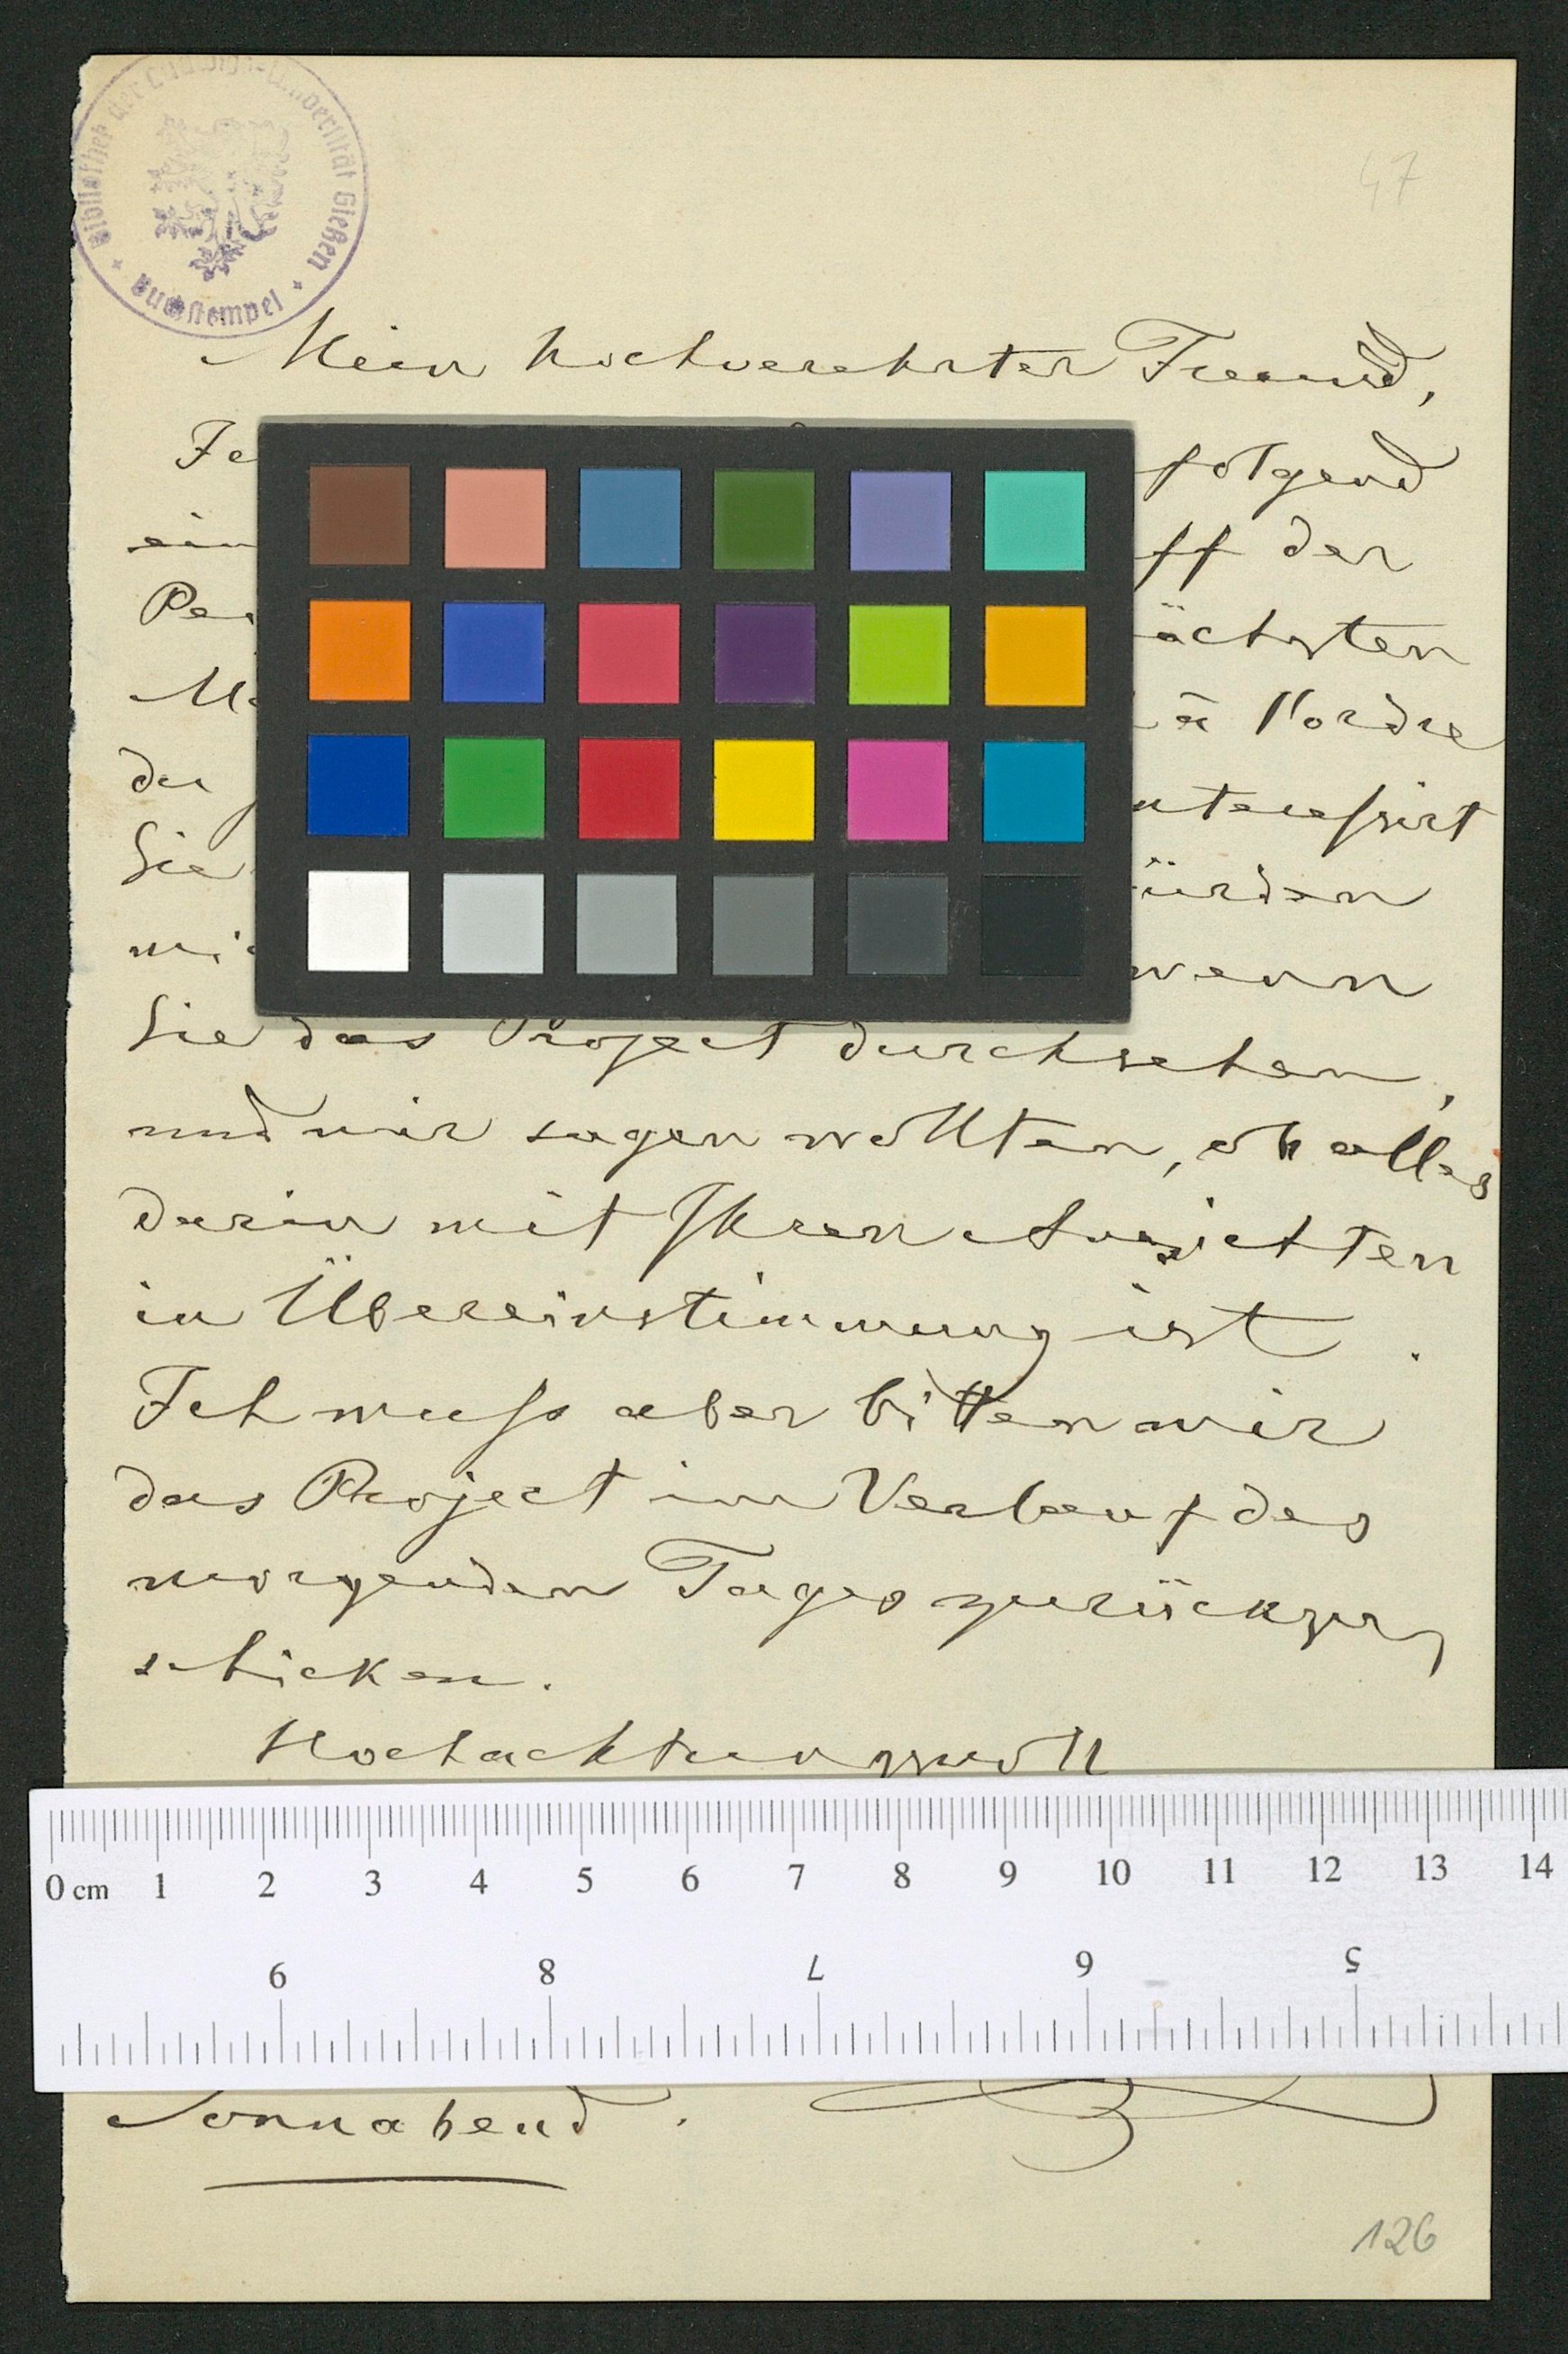 Bibliothek der Ludwigs-Universität Gießen
Buchstempel
47
Mein hochverehrter Freund,
folgend
ff der
ächsten
à l'ordre
du
nteressirt
Sie
ürden
wenn
Sie das Project durchsehen,
und mir sagen wollten, ob alles
darin mit Ihren Ansichten
in Übereinstimmung ist.
Ich muss aber bitten mir
das Project im Verlauf des
morgenden Tages zurückzu
schicken.
Hochachtungsvoll
0 cm 1 2 3 4 5 6 7 8 9 10 11 12 13 14
9 8 7 6 5
Sonnabend.
126